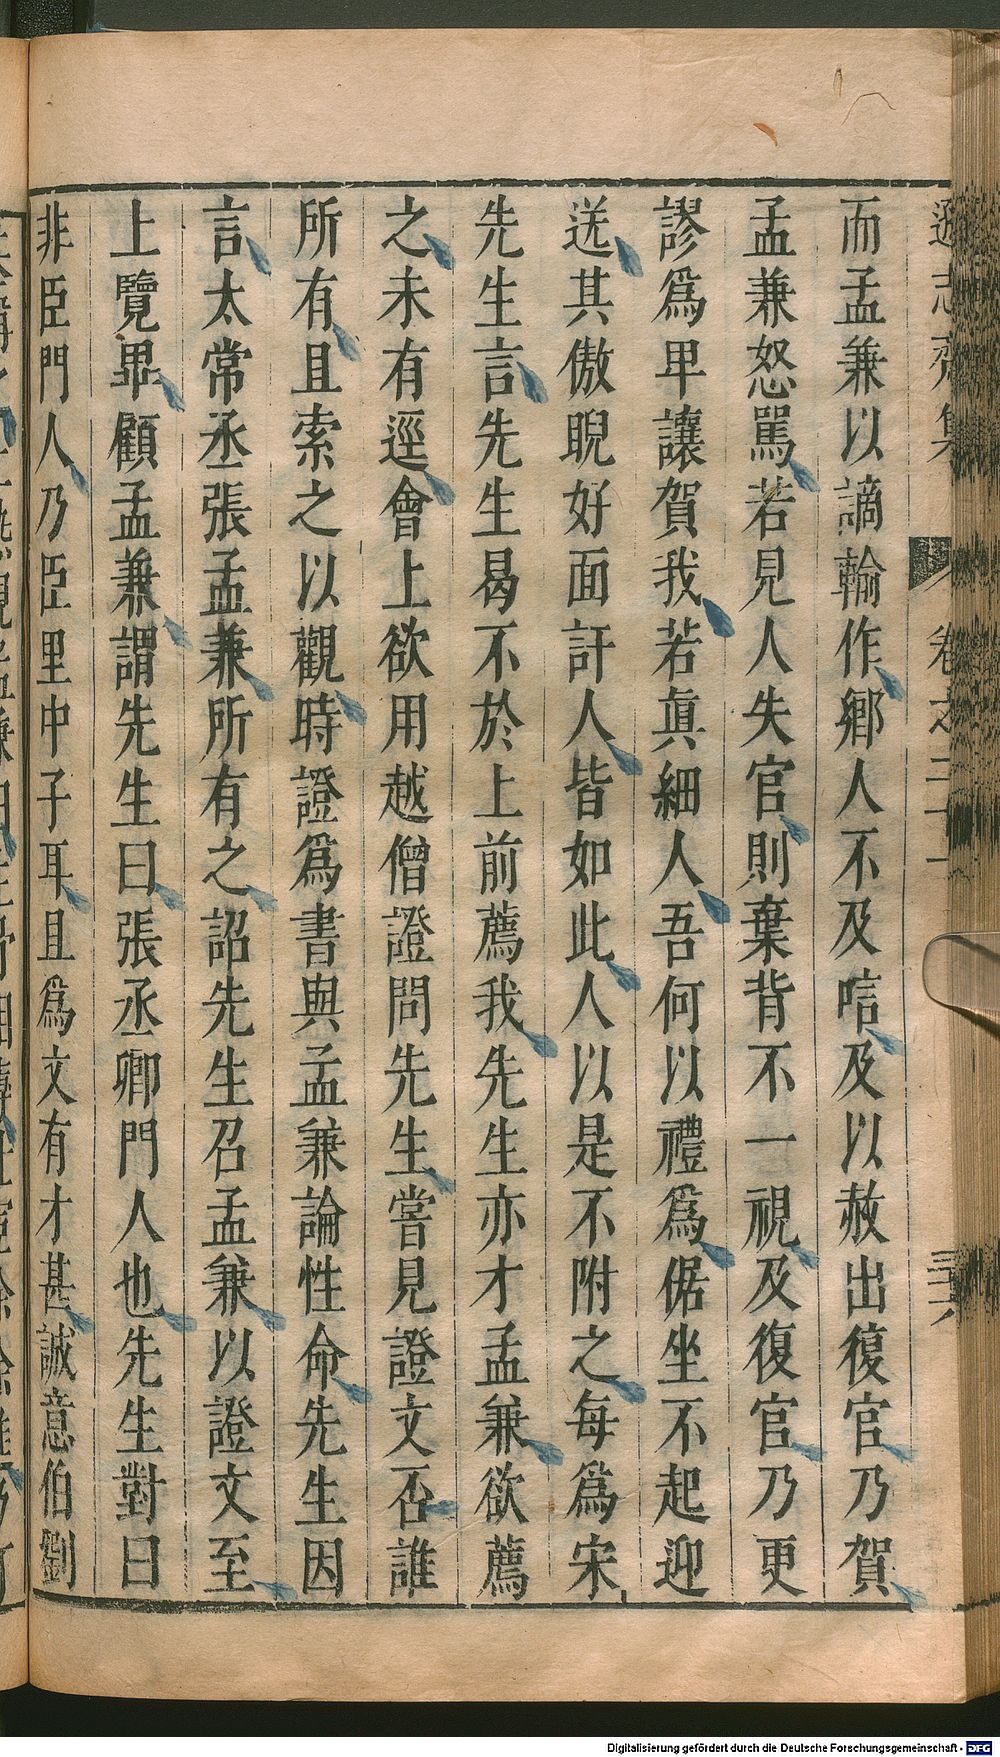 遜志齋集 卷之二十一 三十六
而孟兼以謫輸作鄉人不及唁及以赦出復官乃賀
孟兼怒罵若見人失官則棄背不一視及復官乃更
謬爲卑讓賀我若眞細人吾何以禮爲倨坐不起迎
送其傲睨好面訐人皆如此人以是不附之每爲宋
先生言先生曷不於上前薦我先生亦才孟兼欲薦
之未有逕會上欲用越僧證問先生嘗見證文否誰
所有且索之以觀時證爲書與孟兼論性命先生因
言太常丞張孟兼所有之詔先生召孟兼以證文至
上覽畢顧孟兼謂先生曰張丞卿門人也先生對曰
非臣門人乃臣里中子耳且爲文有才甚誠意伯劉
Digitalisierung gefördert durch die Deutsche Forschungsgemeinschaft - DFG